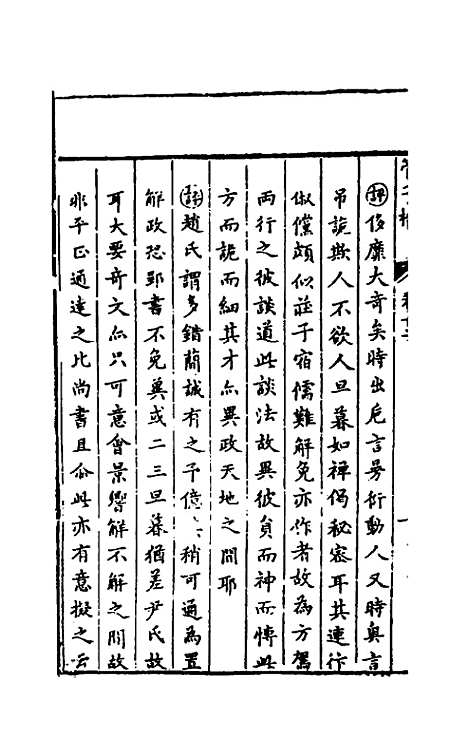 評侈靡大奇矣時出卮言曼衍動人又時奧言
吊詭欺人不欲人旦暮如禪偈秘密耳其連犿
俶儻頗似莊子宿儒難解免亦作者故為方駕
兩行之彼談道此談法故異彼負而神而博此
方而詭而細其才亦異政天地之間耶
評趙氏謂多錯簡誠有之予億稍可通為置
解政恐郢書不免冀或二三旦暮猶差尹氏故
耳大要奇文亦只可意會景響解不解之間故
非平正通達之比尚書且瓜此亦有意擬之云